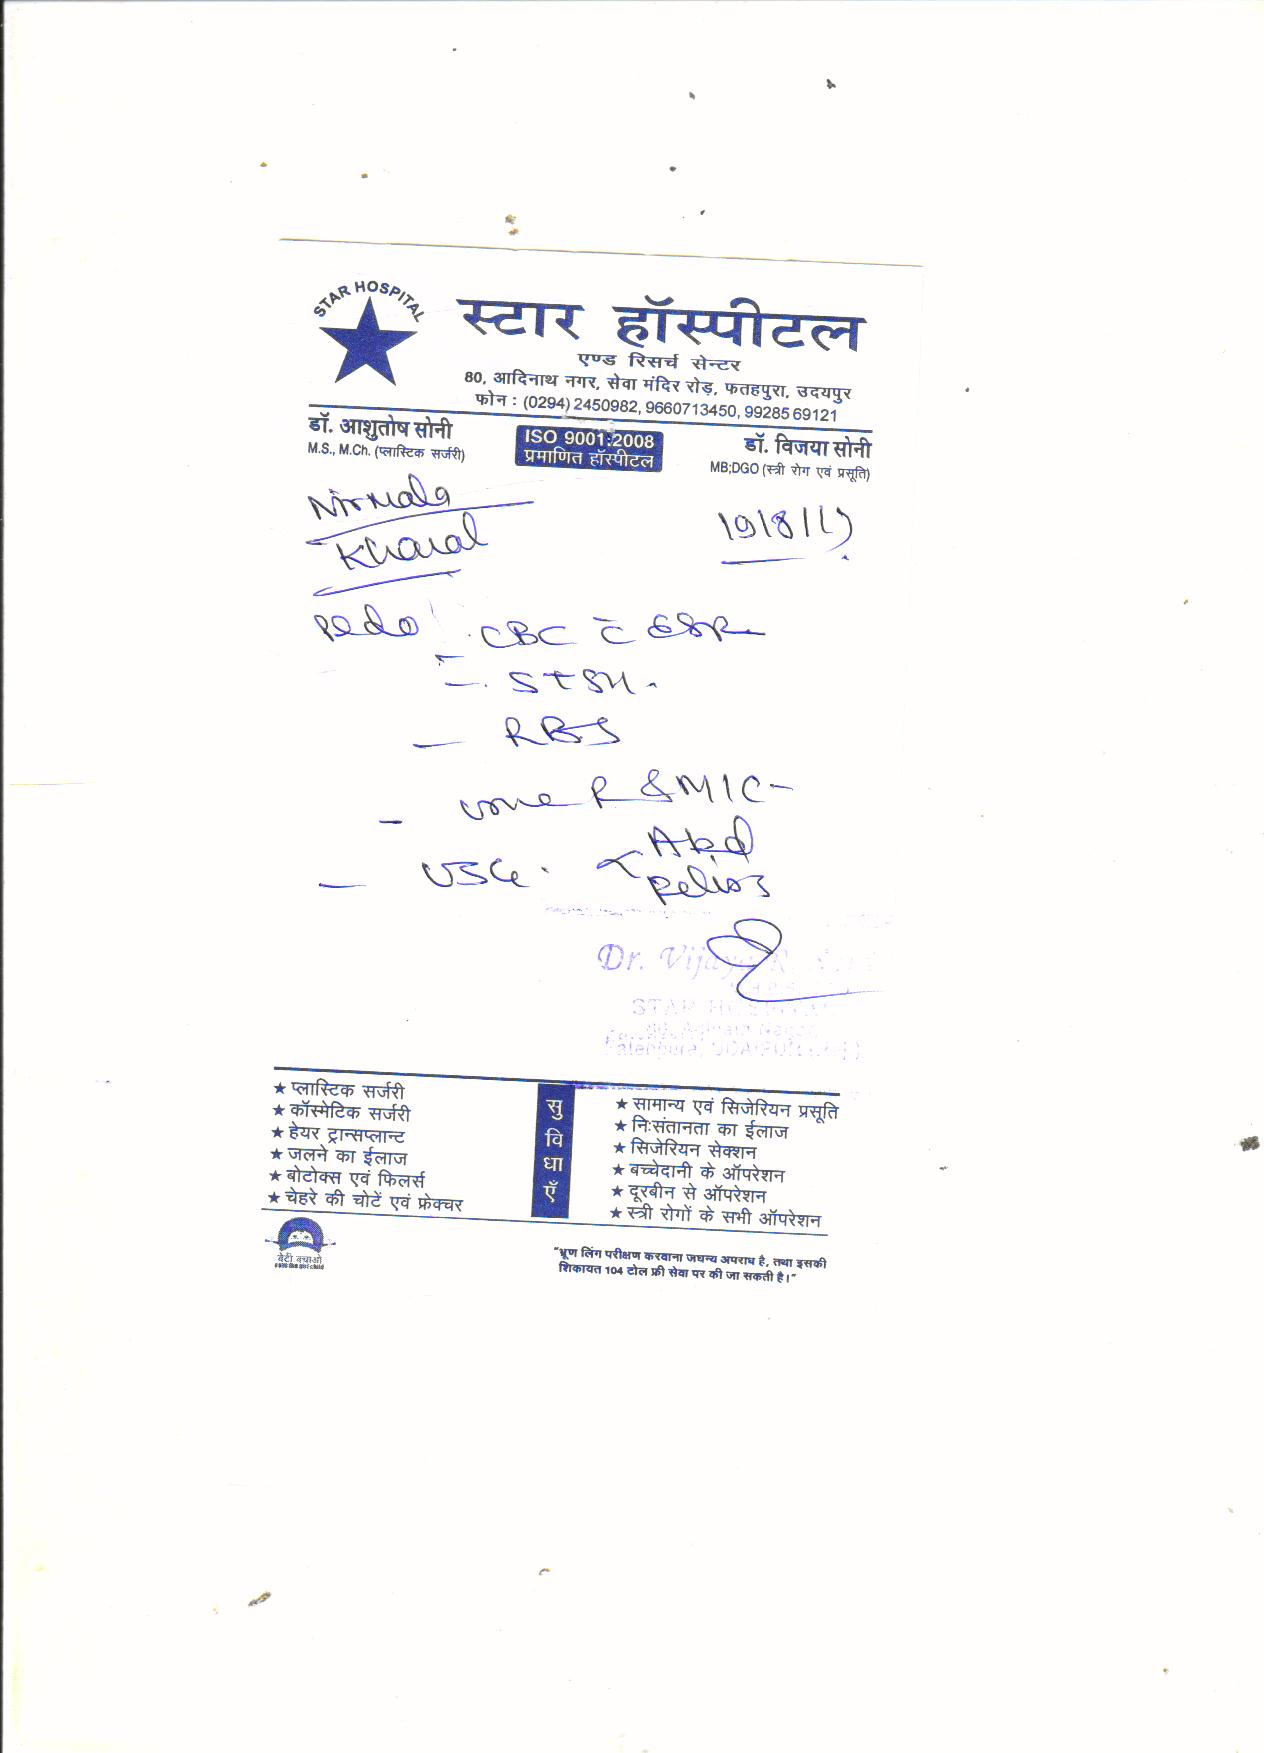 STAR HOSPITAL
स्टार हॉस्पीटल
एण्ड रिसर्च सेन्टर
80, आदिनाथ नगर, सेवा मंदिर रोड़, फतहपुरा, उदयपुर
फोन : (0294) 2450982, 9660713450, 99285 69121
डॉ. आशुतोष सोनी
M.S., M.Ch. (प्लास्टिक सर्जरी)
ISO 9001:2008
प्रमाणित हॉस्पीटल
डॉ. विजया सोनी
MB;DGO (स्त्री रोग एवं प्रसूति)
Nirmala
Kharal
19/8/17
CBC c̄ ESR
- S TSH.
- RBS
- Urine R & MIC -
- USG. < Abd
Pelvis
Dr. Vijaya
STAR HOSPITAL
★ प्लास्टिक सर्जरी
★ कॉस्मेटिक सर्जरी
★ हेयर ट्रान्सप्लान्ट
★ जलने का ईलाज
★ बोटोक्स एवं फिलर्स
★ चेहरे की चोटें एवं फ्रेक्चर
सुविधाएँ
★ सामान्य एवं सिजेरियन प्रसूति
★ निःसंतानता का ईलाज
★ सिजेरियन सेक्शन
★ बच्चेदानी के ऑपरेशन
★ दूरबीन से ऑपरेशन
★ स्त्री रोगों के सभी ऑपरेशन
बेटी बचाओ
"भ्रूण लिंग परीक्षण करवाना जघन्य अपराध है, तथा इसकी
शिकायत 104 टोल फ्री सेवा पर की जा सकती है।"